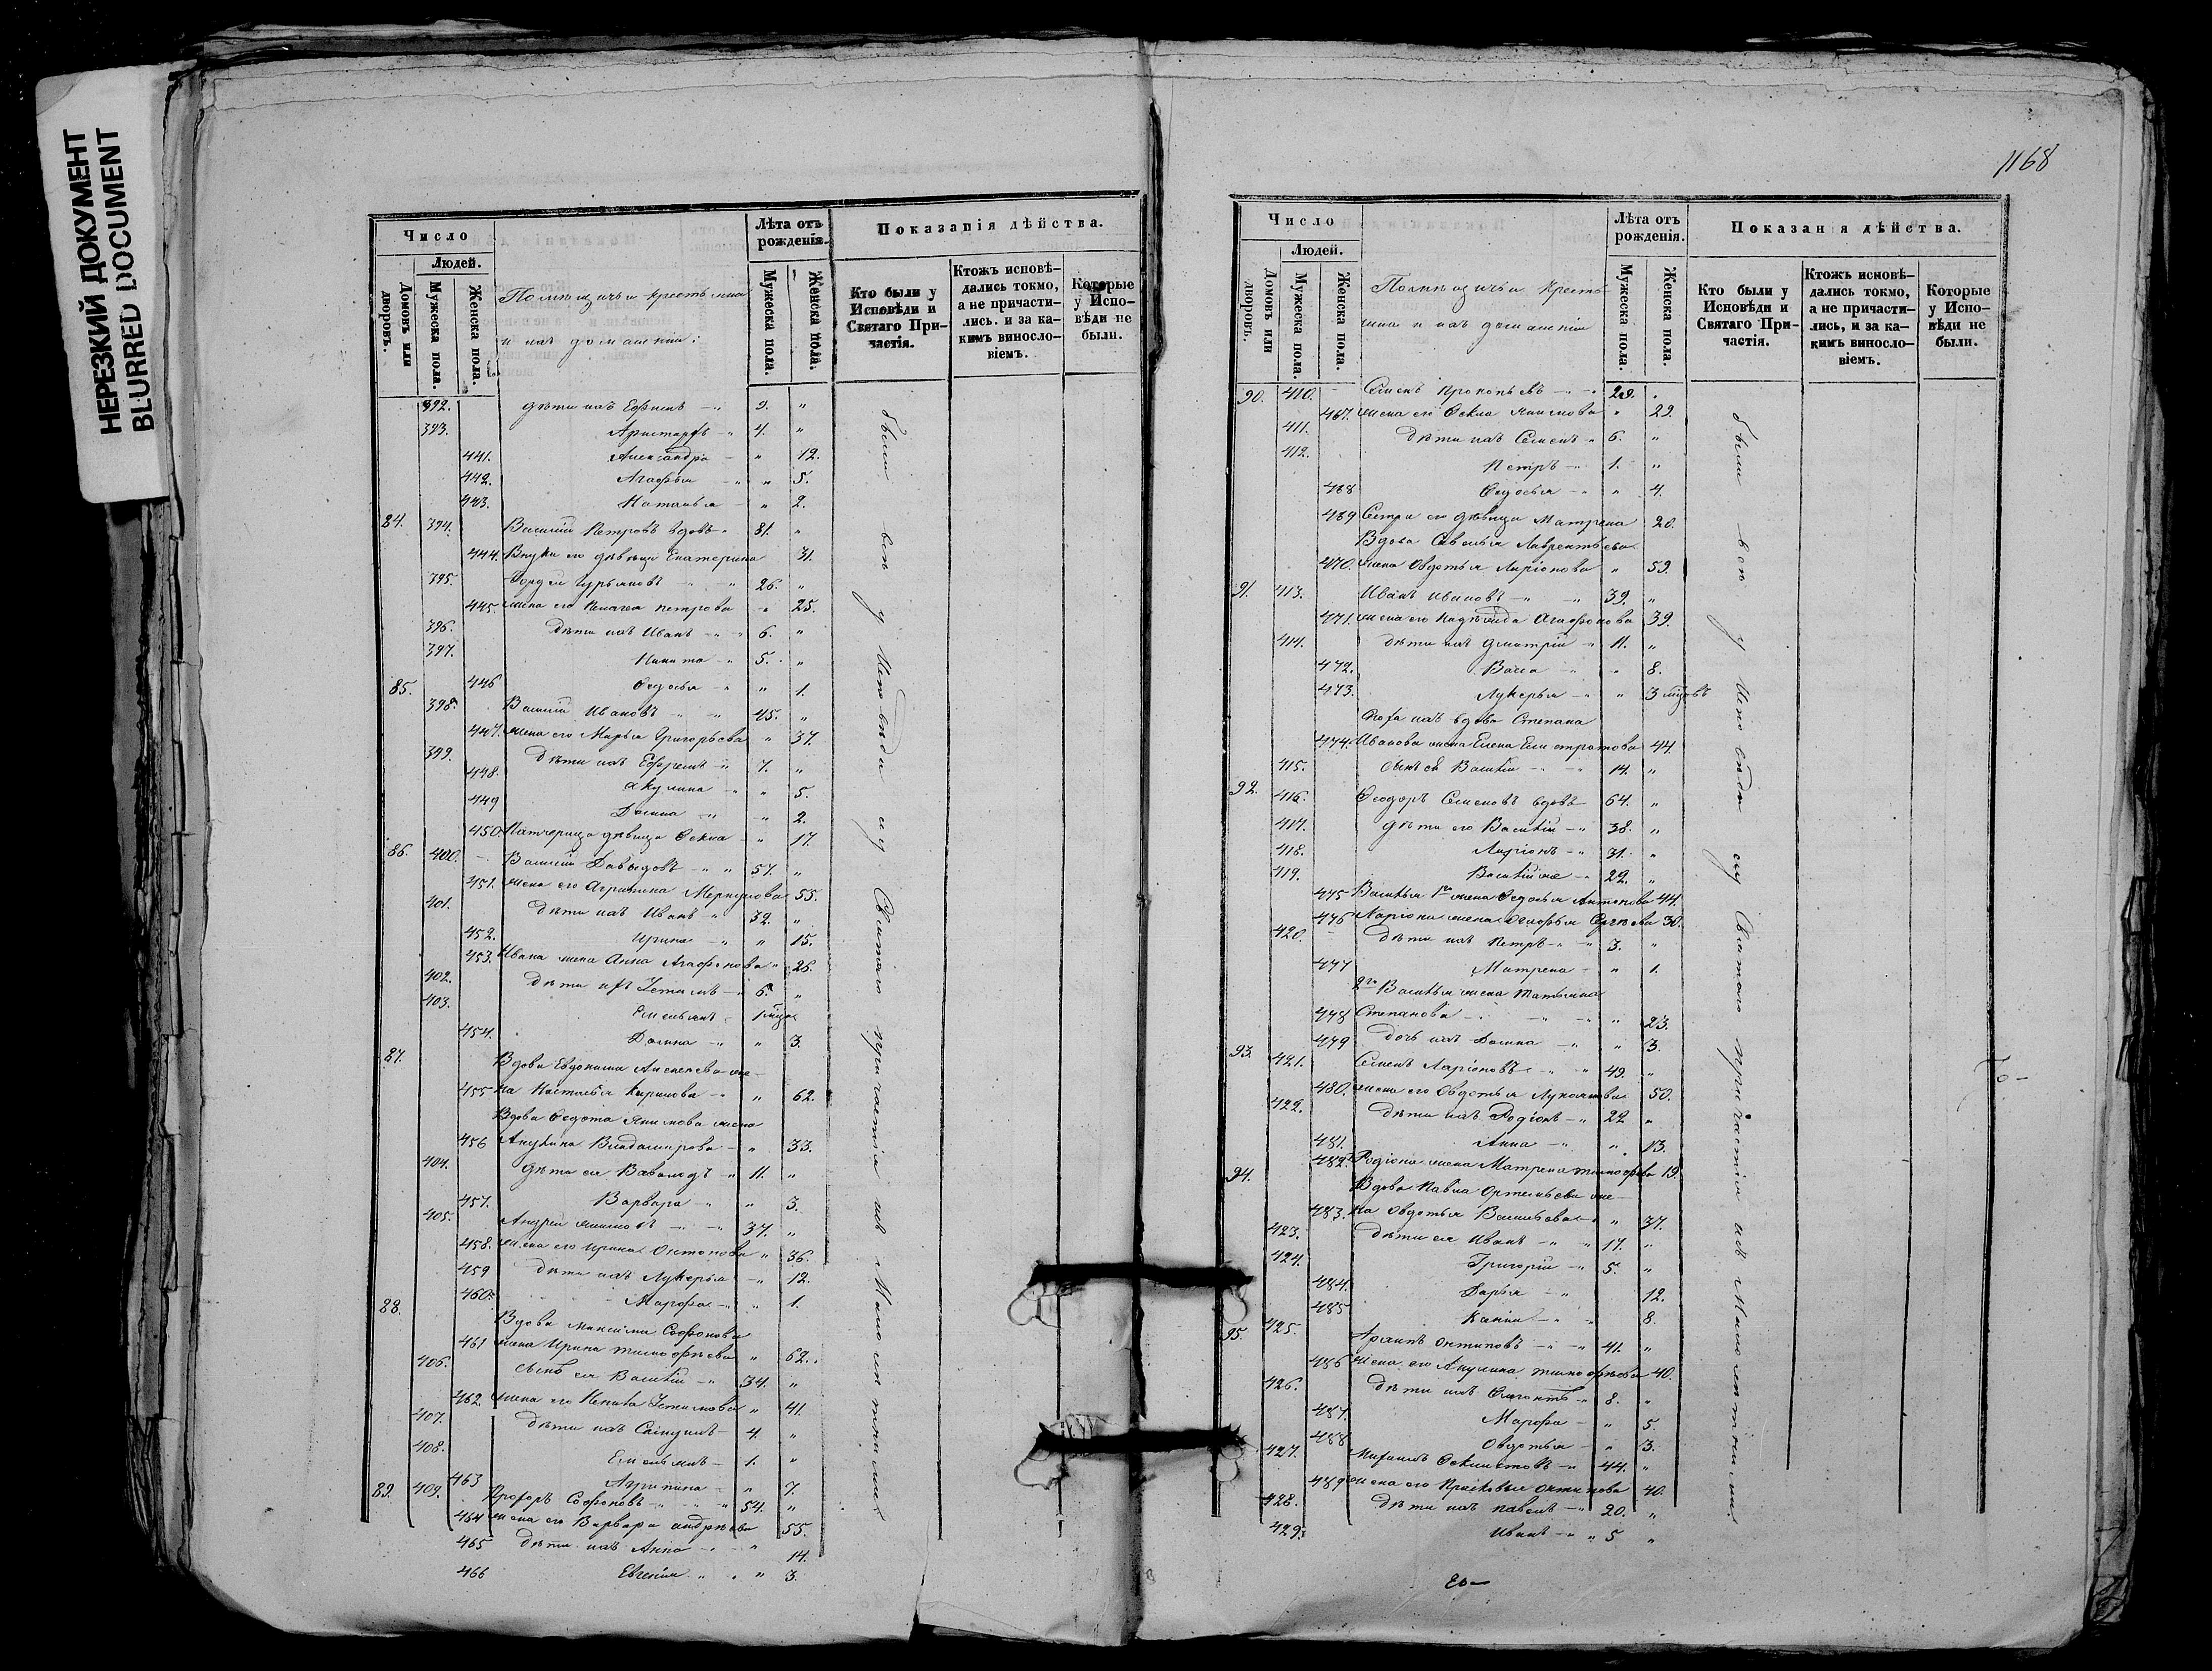 НЕРЕЗКИЙ ДОКУМЕНТ
BLURRED DOCUMENT
Число
Людей.
Домовъ или дворовъ.
Мужеска пола.
Женска пола.
Помѣщичьи крестьяна
и ихъ домашнии:
Лѣта отъ рожденія.
Мужеска пола.
Женска пола.
Показанія дѣйства.
Кто были у Исповѣди и Святаго Причастія.
Ктожъ исповѣдались токмо, а не причастились. и за какимъ винословіемъ.
Которые у Исповѣди не были.
392. дѣти ихъ Ефимъ -〃 9. 〃
393. Аристархъ -〃 4. 〃
441. Александра - 〃 12.
442. Агафья -〃 〃 5.
443. Наталья - 〃 2.
84. 394. Василій Петровъ вдовъ 〃 81. 〃
444. Внука его дѣвица Екатерина 31.
395. Гордей Гурьяновъ -〃 -〃 26. 〃
445. жена его Пелагея Петрова -〃 25.
396. Дѣти ихъ Иванъ -〃 -〃 6. 〃
397. Никита -〃 5. 〃
446 Федосья -〃 〃 1.
85. 398. Василій Ивановъ -〃 -〃 45. 〃
447. жена его Марья Григорьева 〃 37.
399. Дѣти ихъ Ефремъ -〃 7. 〃
448. Акулина -〃 〃 5.
449 Домна -〃 -〃 2.
450. Патчерица дѣвица Фекла - 〃 17.
86. 400. Василій Давыдовъ -〃 〃 57. 〃
451. жена его Агрипина Меркулова 55.
401. Дѣти ихъ Иванъ 〃 32. 〃
452. Ирина -〃 〃 15.
453. Ивана жена Анна Агафонова 〃 26.
402. Дѣти ихъ Устимъ -〃 6. 〃
403. Емельянъ - 1 мѣца
454. Домна -〃 〃 3.
87. Вдова Евдокима Алексеева же-
455 на Настасья Карпова -〃 〃 62.
Вдова Федота Якимова жена
456 Акулина Владимирова - 〃 33.
404. Дѣти ея Ваволодъ 〃 11. 〃
457. Варвара -〃 〃 3.
405. Андрей Якимовъ -〃 -〃 37. 〃
458. жена его Ирина Антонова 〃 36.
459 Дѣти ихъ Лукерья -〃 12.
460. Марфа -〃 〃 1.
88. Вдова Максима Софонова
461 жена Ирина Тимофѣева 〃 62.
406. Сынъ ея Василій -〃 34. 〃
462. жена его Устимова 〃 41.
407. Дѣти ихъ - 4. 〃
408. Емельянъ - 1. 〃
463 Агрипина - 〃 7.
89. 409. Прохоръ Софоновъ -〃 -〃 〃 54. 〃
464 жена его Варвара Андрѣева 55.
465 Дѣти ихъ Анна -〃 -〃 14.
466 Евгенія 〃 〃 〃 3.
были всѣ у Исповѣди и у Святаго причастія изъ Малолѣтними
1168
Число
Людей.
Домовъ или дворовъ.
Мужеска пола.
Женска пола.
Помѣщичьи кресть
яна и ихъ домашніи
Лѣта отъ рожденія.
Мужеска пола.
Женска пола.
Показанія дѣйства.
Кто были у Исповѣди и Святаго Причастія.
Ктожъ исповѣдались токмо, а не причастились, и за какимъ винословіемъ.
Которые у Исповѣди не были.
90. 410. Семенъ Прокопьевъ -〃 -〃 29. 〃
467. жена его Фекла Якимова 〃 29.
411. Дѣти ихъ Семенъ 〃 6. 〃
412. Петръ -〃 1. 〃
468 Федосья -〃 〃 4.
469 Сестра его дѣвица Матрена 20.
Вдова Савелья Лаврентьева
470. жена Овдотья Ларіонова 〃 59.
91. 413. Иванъ Ивановъ -〃 -〃 39. 〃
471. жена его Надѣжда Агафонова 39.
414. Дѣти ихъ Дмитрій 〃 11. 〃
472. Васса 〃 8.
473. Лукерья -〃 〃 3 мцовъ
Сноха ихъ вдова Степана
474. Иванова жена Елена Елистратова 44.
415. сынъ ея Василій -〃 -〃 14. 〃
92. 416. Феодоръ Семеновъ вдовъ 64. 〃
417. Дѣти его Василій -〃 38. 〃
418. Ларіонъ -〃 31. 〃
419. Василій же -〃 22. 〃
475 Василья 1го жена Федосья Антонова 44.
476 Ларіона жена Агафья Сергѣева 30.
420. Дѣти ихъ Петръ -〃 -〃 3. 〃
477 Матрена - 〃 1.
2го Василья жена Татьяна
478 Степанова -〃 -〃 -〃 〃 23.
479 дочь ихъ Домна -〃 〃 3.
93. 421. Семенъ Ларіоновъ -〃 -〃 49. 〃
480. жена его Овдотья Лукьянова 50.
422. Дѣти ихъ Родіонъ -〃 22 〃
481. Анна -〃 〃 13.
482. Родіона жена Матрена Тимофѣева 19.
94. Вдова Павла Артемьева же-
483. на Овдотья Васильева -〃 〃 37.
423. Дѣти ея Иванъ -〃 〃 17. 〃
424. Григорій -〃 5. 〃
484. Дарья -〃 12.
485 -〃 8.
95. 425. Архипъ Антиповъ -〃 -〃 41. 〃
486 жена его Акулина Тимофѣева 40.
426. Дѣти ихъ 〃 8. 〃
487. Марфа - 〃 5.
488 Овдотья - 〃 3.
427. Михаилъ -〃 44. 〃
489 жена его Прасковья Антипова 40.
428. Дѣти ихъ Павелъ -〃 20. 〃
429. Иванъ -〃 〃 5 〃
были всѣ у Исповѣди и у Святаго причастія изъ Малолѣтними